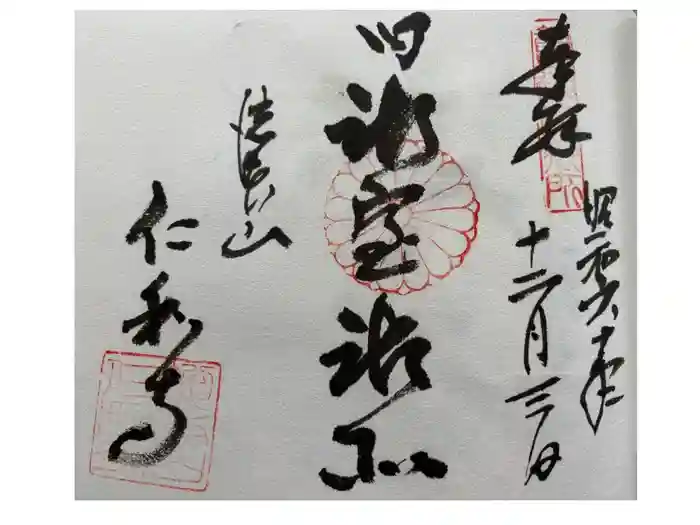 奉拝
昭和六十年
十二月三日
旧御室御所
山
仁和寺